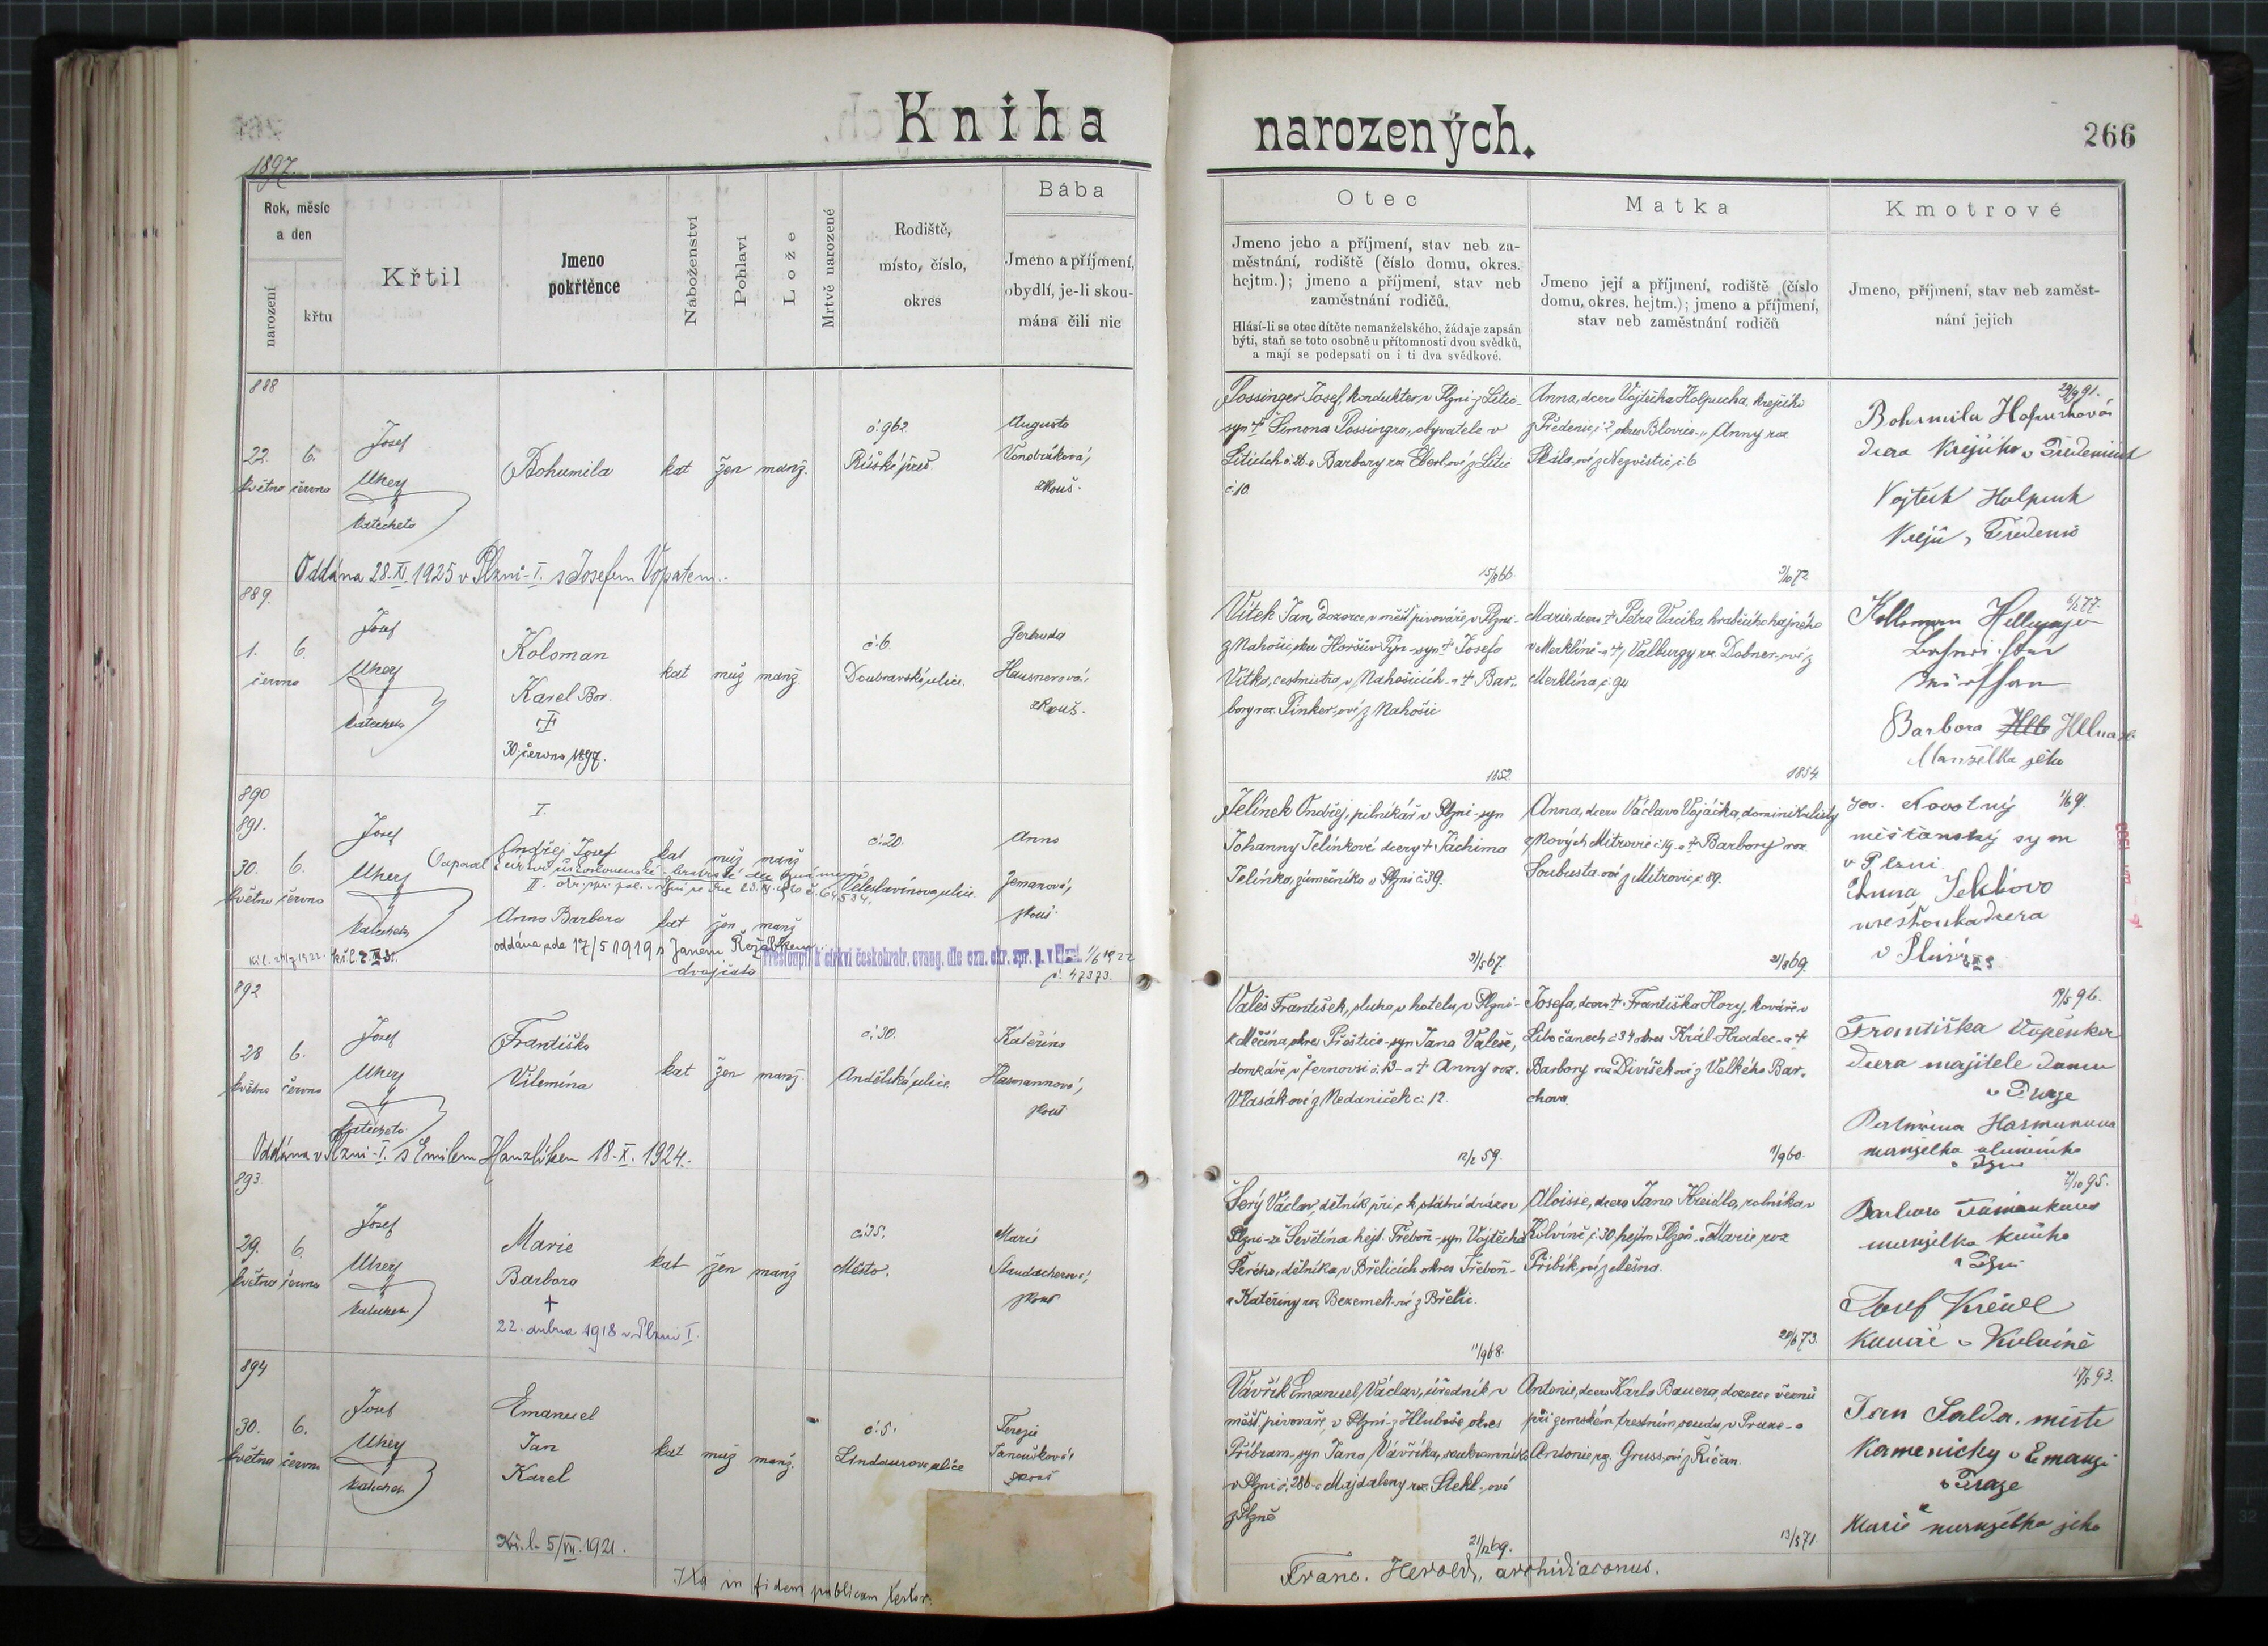 Kniha
narozených.
266
1897.
Rok, měsíc
a den
narození
křtu
Křtil
Jmeno
pokřtěnce
Náboženství
Pohlaví
Lože
Mrtvě narozené
Rodiště,
místo, číslo,
okres
Bába
Jmeno a příjmení,
obydlí, je-li skou-
mána čili nic
Otec
Jmeno jeho a příjmení, stav neb za-
městnání, rodiště (číslo domu, okres.
hejtm.); jmeno a příjmení, stav neb
zaměstnání rodičů.
Hlásí-li se otec dítěte nemanželského, žádaje zapsán
býti, staň se toto osobně u přítomnosti dvou svědků,
a mají se podepsati on i ti dva svědkové.
Matka
Jmeno její a příjmení, rodiště (číslo
domu, okres, hejtm.); jmeno a příjmení,
stav neb zaměstnání rodičů
Kmotrové
Jmeno, příjmení, stav neb zaměst-
nání jejich
888
22. 6.
května června
Josef
Uhery
katecheta
Bohumila
kat žen manž.
č. 962
Říšské před.
Augusta
Vondráková,
zkouš.
Possinger Josef, kondukter v Plzni z Litic-
syn † Šimona Possingra, obyvatele v
Liticích č. 26 a Barbory roz. Eberl,ové z Litic
č. 10.
15/8 66.
Anna, dcera Vojtěcha Holpucha, krejčího
z Předenic č. 2 okres Blovice
Anny roz
Skála,ové z Nezvěstic č. 6
3/10 72
29/9 91.
Bohumila
dcera krejčího
Vojtěch Holpuch
Oddána 28. XI. 1925 v Plzni-I. s Josefem Vopatem.-
889.
1. 6.
června
Josef
Uhery
katecheta
Koloman
Karel Bor.
†
30. června 1897.
kat muž manž
č. 6.
Doubravská ulice.
Gertruda
Hausnerová,
zkouš.
Vítek Jan, dozorce v měšť. pivováře v Plzni-
z Nahošic, okres Horšův Týn - syn † Josefa
Vítka, cestmistra v Nahošicích - a † Bar-
bory roz. Pinker,ové z Nahošic
1852.
Marie, dcera † Petra Vacika, hraběcího hajného
v Merklíně - a † Valburgy roz. Dobner,ové z
Merklína, č. 94
1854
6/2 77.
Barbora
Manželka jeho
890
891.
30. 6.
května června
Josef
Uhery
katecheta
I.
Andřej Josef
kat muž manž
II.
Anna Barbora
kat žen manž
oddána dle 17/5 1919 s Janem
dvojčata
Přestoupil k církvi českobratr. evang. dle ozn. okr. spr. p. v Plzni 1/6 1922
č. 47373.
č. 20.
Veleslavínova ulice.
Anna
Zemanová,
zkouš.
Jelínek Ondřej, pilníkář v Plzni - syn
Johanny Jelínkové dcery † Jáchima
Jelínka, zámečníka v Plzni č. 39.
Anna, dcera Václava Vojáčka, dominikalisty
z Nových Mitrovic č. 19. a † Barbory roz
Soubusta,ové z Mitrovic č. 89.
Novotný
měšťanský syn
v Plzni.
892
28 6.
května června
Josef
Uhery
katecheta
Františka
Vilemína
kat žen manž.
č. 30.
Andělská ulice.
Kateřina
Hasmannová,
zkouš
Valeš František, sluha v hotelu v Plzni-
z Měčína, okres Přeštice - syn Jana Valeše,
domkáře, v Černovsi č. 13 - a † Anny roz.
Vlasák ové z Nedaniček č. 12.
12/2 59.
Josefa, dcera † Františka Hory, kováře v
Libčanech č. 34 okres Král. Hradec - a †
Barbory roz Divíšek ové z Velkého Bar-
chova.
1/9 60.
19/5 96.
Františka
dcera majitele domu
v Praze
manželka
Oddána v Plzni-I. s Emilem Hanzlíkem 18-X. 1924.-
893
29. 6.
května června
Josef
Uhery
katecheta
Marie
Barbora
†
22. dubna 1918 v Plzni I.
kat žen manž
č. 35.
Město.
Marie
Staudacherová,
zkouš
Šerý Václav, dělník při c. k. státní dráze v
Plzni - ze Ševětína hejt. Třeboň - syn Vojtěcha
Šerého, dělníka, v Břelicích okres Třeboň -
a Kateřiny roz. Bezemek-ové z Břelic.
11/9 68.
Aloisie, dcera Jana Kreidla, rolníka v
Kolvíně č. 30, hejtm Plzeň a Marie roz
Přibík,ové z Měšna.
20/6 73.
7/10 95.
Barbora
manželka
894
30. 6.
května června
Josef
Uhery
katecheta
Emanuel
Jan
Karel
Kř. l. 5/VII. 1921.
kat muž manž.
č. 5.
Lindaurova ulice
Terezie
Janoušková,
zkouš
Vávřík Emanuel Václav, úředník v
měšť. pivováře, v Plzni - z Hluboše, okres
Příbram - syn Jana Vávříka, soukromníka
v Plzni č. 286 - a Majdaleny roz. Stekl-,ové
z Plzně
21/12 69.
Antonie, dcera Karla Bauera, dozorce věznů
při zemském trestním soudu v Praze - a
Antonie roz. Gruss,ové z Říčan.
13/5 71.
17/5 93.
Jan Šalda,
Kamenický v Emauzi
v Praze
Marie manželka jeho
Ita in fidem publicam testor:
Franc. Herold, archidiaconus.